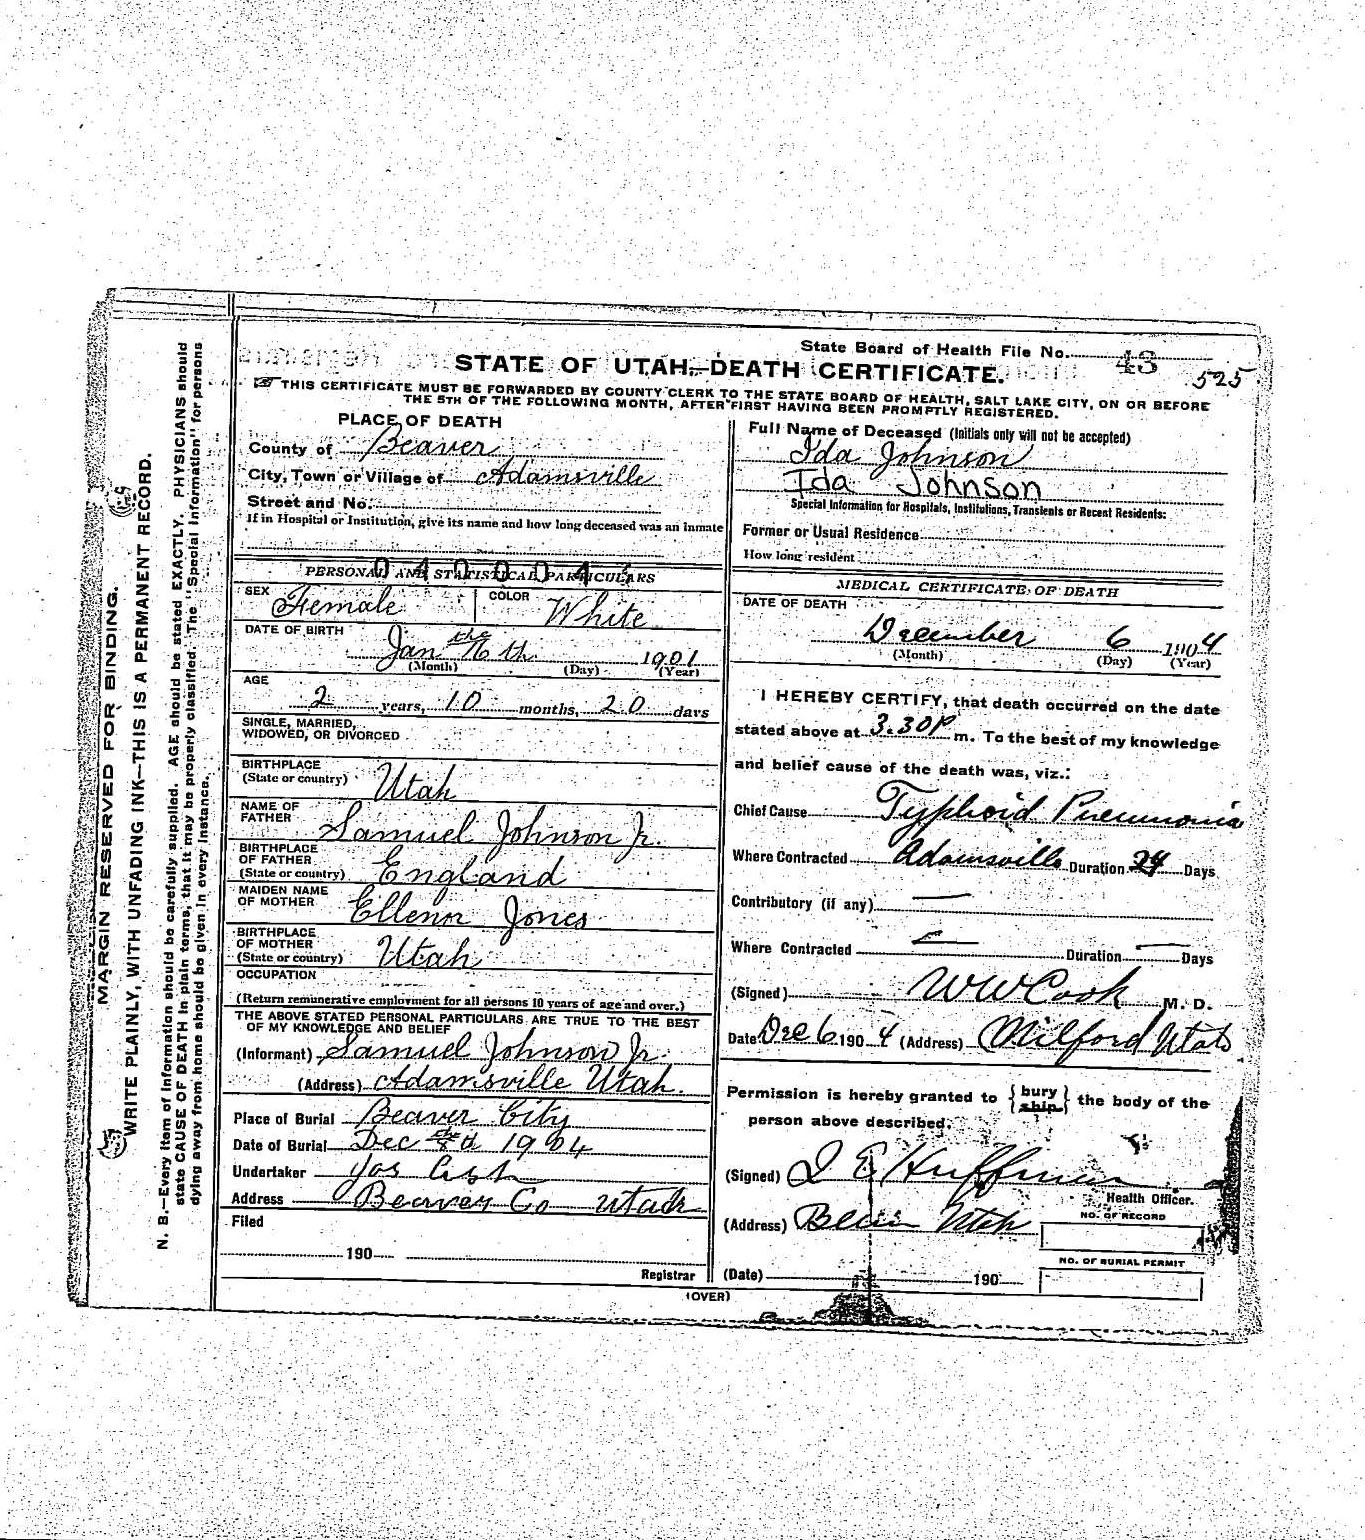 State Board of Health File No. 43
525
STATE OF UTAH—DEATH CERTIFICATE.
THIS CERTIFICATE MUST BE FORWARDED BY COUNTY CLERK TO THE STATE BOARD OF HEALTH, SALT LAKE CITY, ON OR BEFORE
THE 5TH OF THE FOLLOWING MONTH, AFTER FIRST HAVING BEEN PROMPTLY REGISTERED.
MARGIN RESERVED FOR BINDING.
WRITE PLAINLY, WITH UNFADING INK—THIS IS A PERMANENT RECORD.
N. B.—Every item of information should be carefully supplied. AGE should be stated EXACTLY. PHYSICIANS should
state CAUSE OF DEATH in plain terms, that it may be properly classified. The "Special Information" for persons
dying away from home should be given in every instance.
PLACE OF DEATH
County of Beaver
City, Town or Village of Adamsville
Street and No.
If in Hospital or Institution, give its name and how long deceased was an inmate
PERSONAL AND STATISTICAL PARTICULARS
SEX Female COLOR White
DATE OF BIRTH Jan 16 th 1901
(Month) (Day) (Year)
AGE
2 years, 10 months, 20 days
SINGLE, MARRIED,
WIDOWED, OR DIVORCED
BIRTHPLACE
(State or country) Utah
NAME OF
FATHER Samuel Johnson Jr.
BIRTHPLACE
OF FATHER
(State or country) England
MAIDEN NAME
OF MOTHER Ellenor Jones
BIRTHPLACE
OF MOTHER
(State or country) Utah
OCCUPATION
(Return remunerative employment for all persons 10 years of age and over.)
THE ABOVE STATED PERSONAL PARTICULARS ARE TRUE TO THE BEST
OF MY KNOWLEDGE AND BELIEF
(Informant) Samuel Johnson Jr.
(Address) Adamsville Utah.
Place of Burial Beaver City
Date of Burial Dec 1904
Undertaker Jos
Address Beaver Co Utah
Filed
190
Registrar
Full Name of Deceased (Initials only will not be accepted)
Ida Johnson
Ida Johnson
Special Information for Hospitals, Institutions, Transients or Recent Residents:
Former or Usual Residence
How long resident
MEDICAL CERTIFICATE OF DEATH
DATE OF DEATH
December 6 1904
(Month) (Day) (Year)
I HEREBY CERTIFY, that death occurred on the date
stated above at 3.30P m. To the best of my knowledge
and belief cause of the death was, viz.:
Chief Cause Typhoid Pneumonia
Where Contracted Adamsville Duration 24 Days
Contributory (if any) —
Where Contracted — Duration — Days
(Signed) WW Cook M. D.
Date Dec 6 1904 (Address) Milford Utah
Permission is hereby granted to { bury ship } the body of the
person above described.
(Signed) Huffman
Health Officer.
(Address) Utah
NO. OF RECORD
NO. OF BURIAL PERMIT
(Date) 190
(OVER)